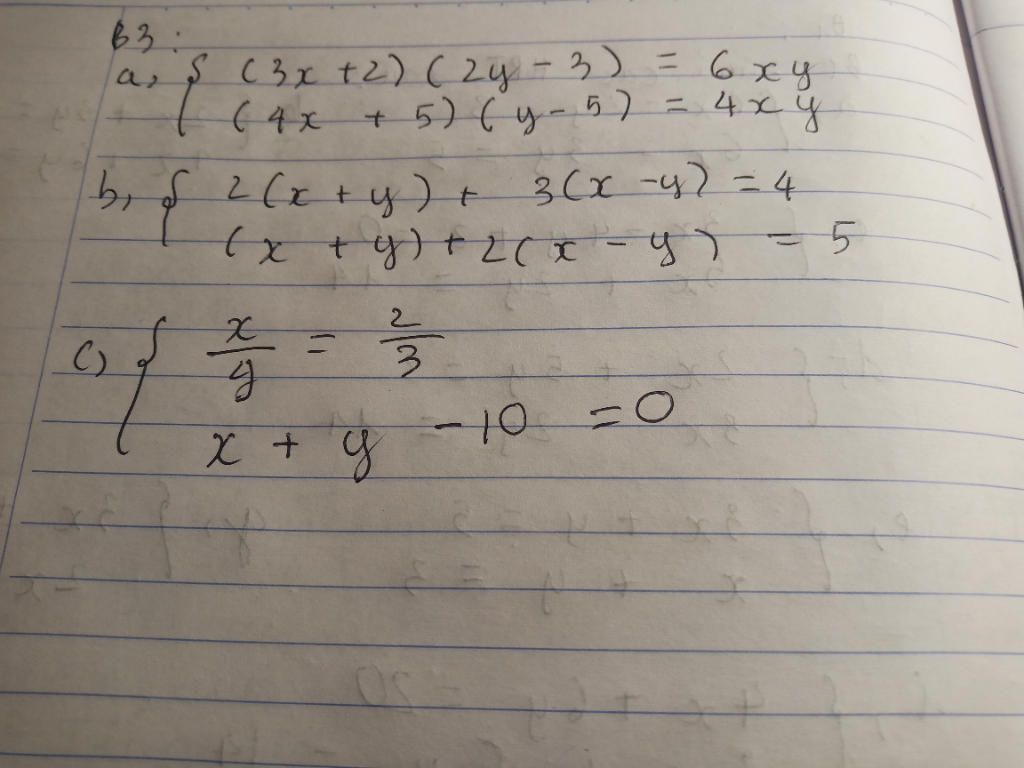 B3:
a, { (3x + 2) (2y - 3) = 6xy
(4x + 5) (y - 5) = 4xy
b, { 2(x + y) + 3(x - y) = 4
(x + y) + 2(x - y) = 5
c) { x/y = 2/3
x + y - 10 = 0